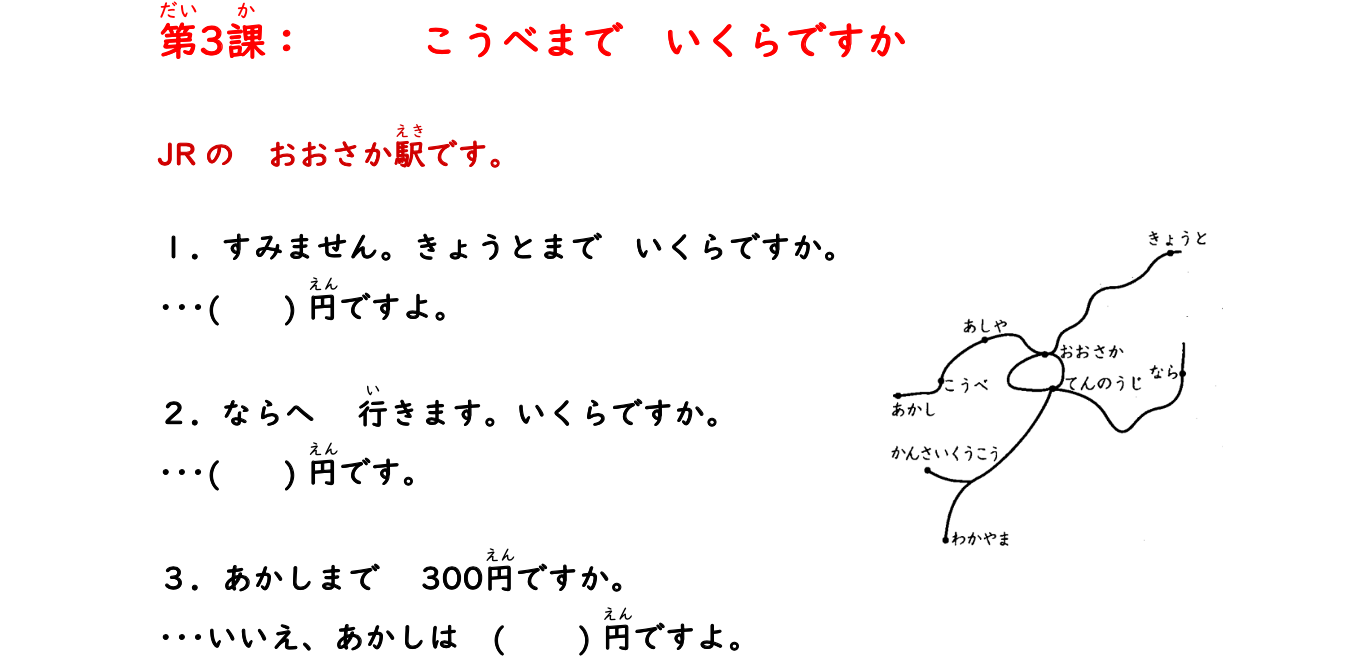 第3課： こうべまで いくらですか
JRの おおさか駅です。
1．すみません。きょうとまで いくらですか。
･･･( ) 円ですよ。
2．ならへ 行きます。いくらですか。
･･･( ) 円です。
3．あかしまで 300円ですか。
･･･いいえ、あかしは ( ) 円ですよ。
きょうと
あしや
おおさか
なら
てんのうじ
こうべ
あかし
かんさいくうこう
わかやま